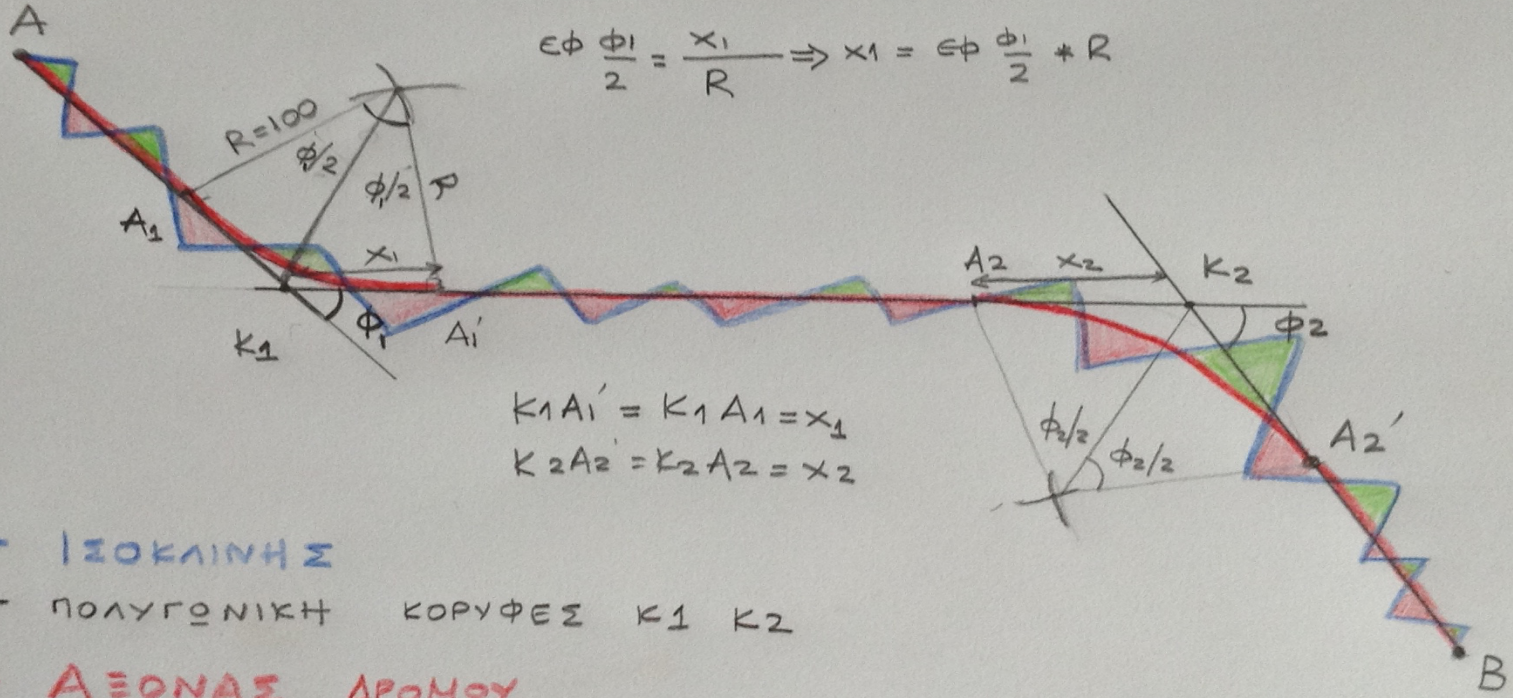 A
εφ φ1/2 = x1/R ⇒ x1 = εφ φ1/2 * R
R=100
φ/2
φ1/2
R
A1
x1
K1
φ1
A1'
A2
x2
K2
φ2
K1A1' = K1A1 = x1
K2A2' = K2A2 = x2
φ2/2
φ2/2
A2'
- ΙΣΟΚΛΙΝΗΣ
- ΠΟΛΥΓΩΝΙΚΗ ΚΟΡΥΦΕΣ Κ1 Κ2
ΑΞΟΝΑΣ ΔΡΟΜΟΥ
B